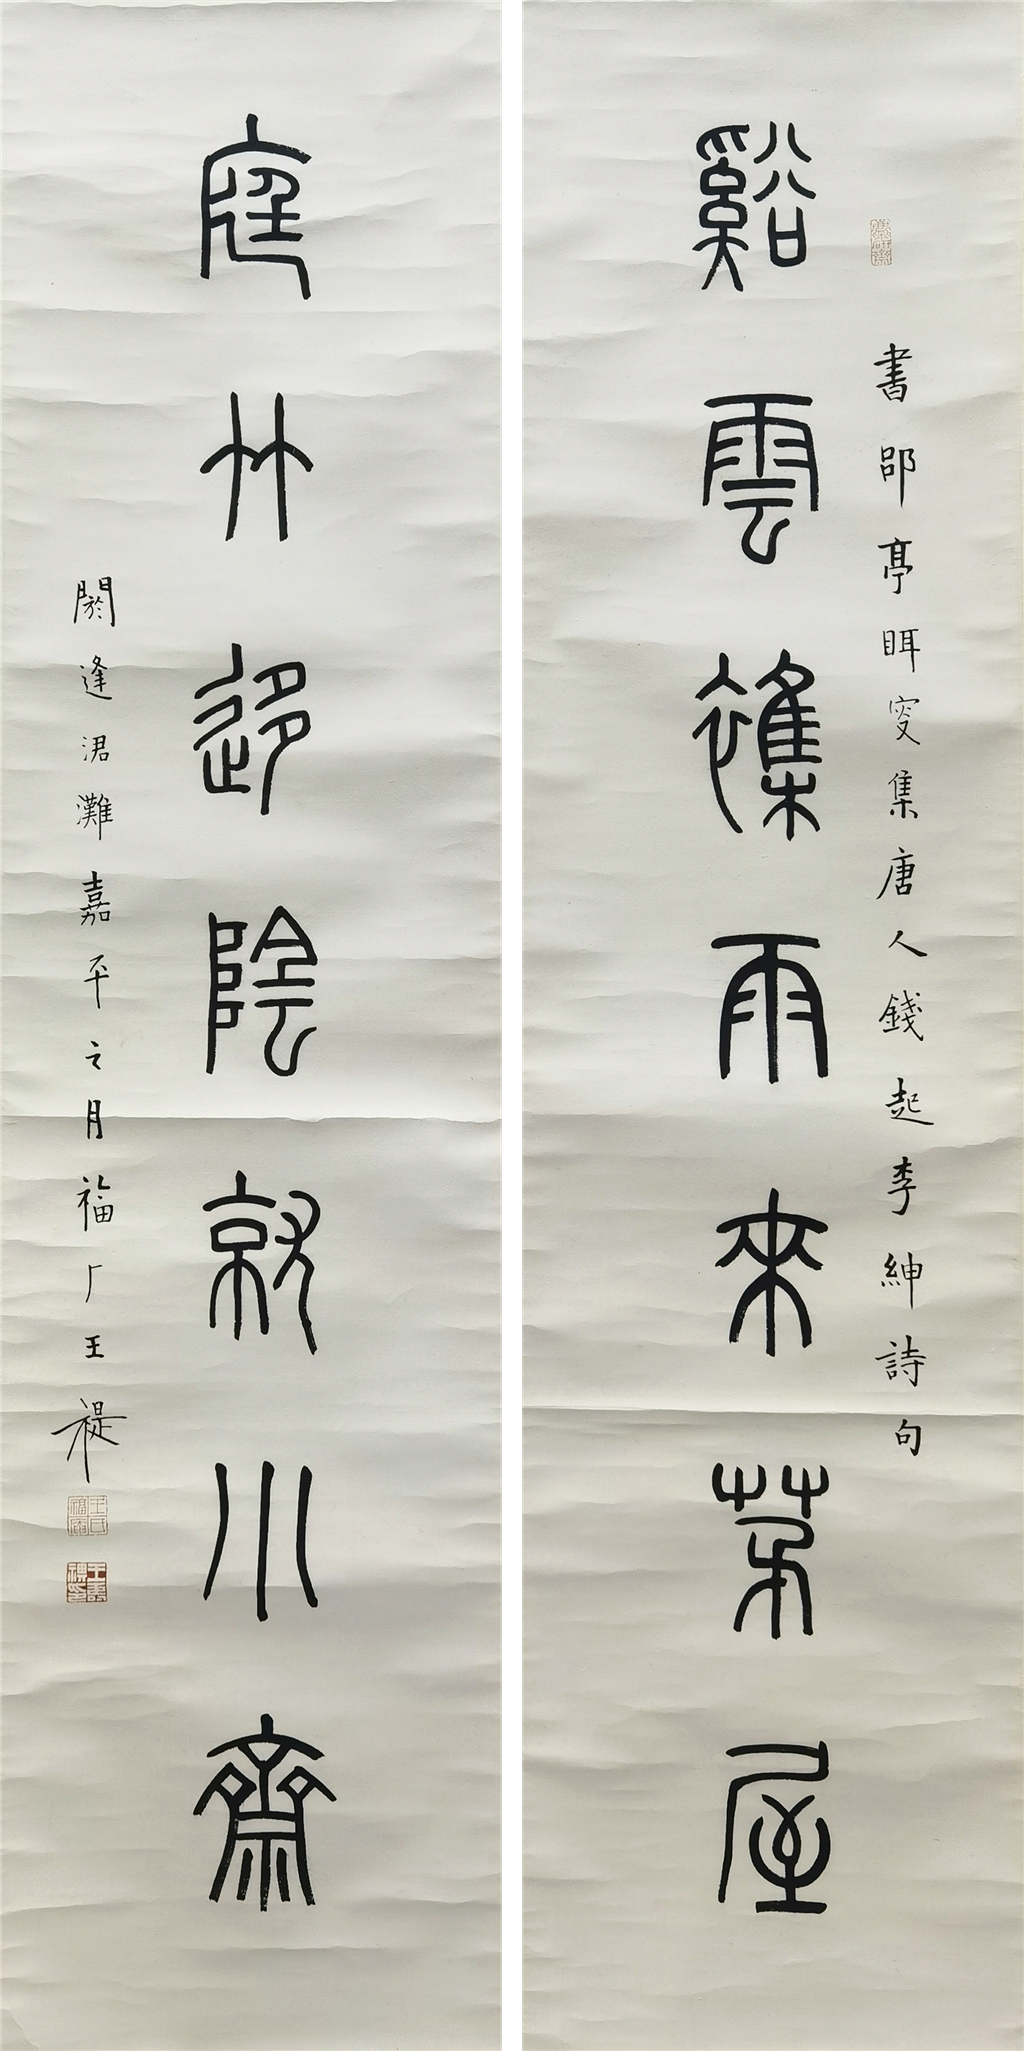 書郘亭眲叜集唐人錢起李紳詩句
谿雲襍雨來茅屋
庭竹迻陰就小齋
閼逢涒灘嘉平之月福厂王禔
王氏福庵